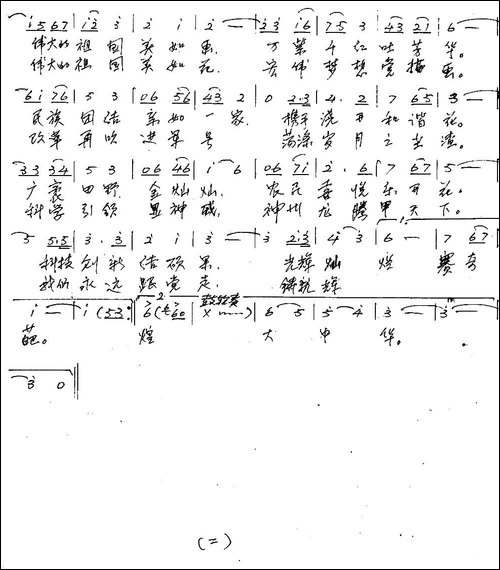 i 5 6 7 | i 2 3 | 2 i | 2 — | 3 3 i 6 | 7 5 3 | 4 3 2 1 | 6 —
伟大的 祖 国 美 如 画。 万 紫 千 红 吐 芳 华。
伟大的 祖 国 美 如 花。 宏 伟 梦 想 党 描 画。
6 i 7 6 | 5 3 | 0 6 5 6 | 4 3 2 | 0 2·3 | 4·2 | 7 6 5 | 3 —
民族 团 结 亲 如 一 家。 携手 浇 开 和 谐 花。
改革 再 吹 进 军 号 荡涤 岁 月 之 尘 渣。
3 3 3 4 | 5 3 | 0 6 4 6 | i 6 | 0 6 7 i | 2·6 | 7 6 7 | 5 —
广 袤 田 野 金 灿 灿。 农 民 喜 悦 乐 开 花。
科学 引 领 显 神 威。 神 州 龙 腾 甲 天 下。
5 5·5 | 3·3 | 2 i | 3 — | 3 2·3 | 4 3 | 6 — | 7 6 7
科技 创 新 结 硕 果。 光辉 灿 烂 赛 奇
我们 永 远 跟 党 走. 铸就 辉
i — | i (5 3 : 6 ( 6 0 | X | 6 5 | 5 4 | 3 — |
葩。 煌 大 中 华。
3 0
(二)